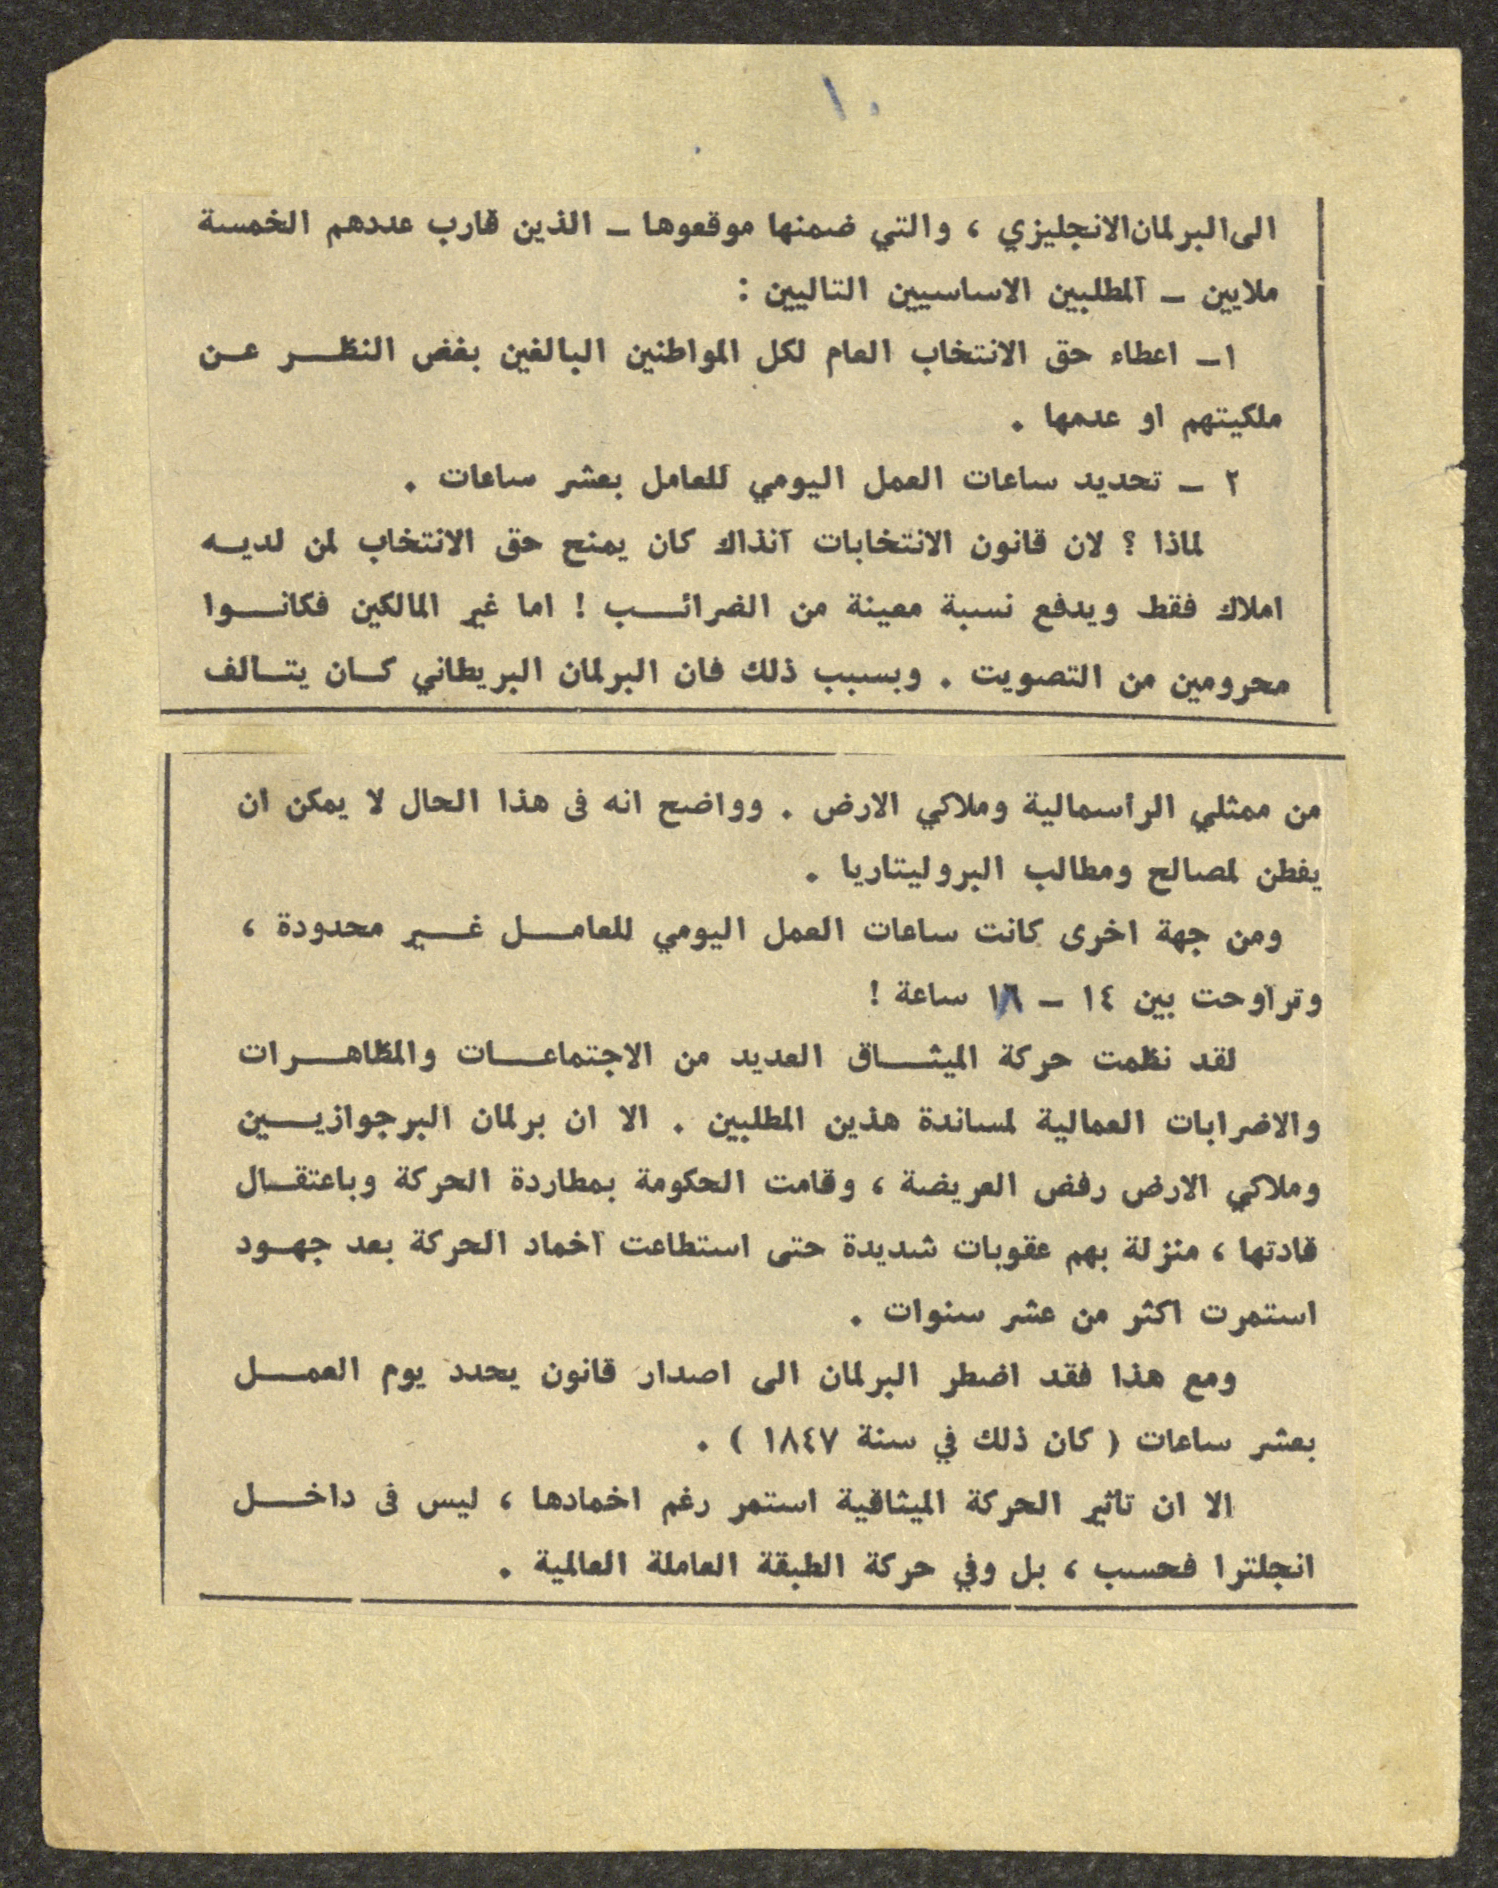 ١٠
الى البرلمان الانجليزي ، والتي ضمنها موقعوها ــ الذين قارب عددهم الخمسة
ملايين ــ المطلبين الاساسيين التاليين :
١ــ اعطاء حق الانتخاب العام لكل المواطنين البالغين بغض النظر عن
ملكيتهم او عدمها .
٢ ــ تحديد ساعات العمل اليومي للعامل بعشر ساعات .
لماذا ؟ لان قانون الانتخابات آنذاك كان يمنح حق الانتخاب لمن لديه
املاك فقط ويدفع نسبة معينة من الضرائب ! اما غير المالكين فكانوا
محرومين من التصويت . وبسبب ذلك فان البرلمان البريطاني كان يتالف
من ممثلي الرأسمالية وملاكي الارض . وواضح انه فى هذا الحال لا يمكن ان
يفطن لمصالح ومطالب البروليتاريا .
ومن جهة اخرى كانت ساعات العمل اليومي للعامل غير محدودة ،
وتراوحت بين ١٤ ــ ١٦ ساعة !
لقد نظمت حركة الميثاق العديد من الاجتماعات والمظاهرات
والاضرابات العمالية لمساندة هذين المطلبين . الا ان برلمان البرجوازيين
وملاكي الارض رفض العريضة ، وقامت الحكومة بمطاردة الحركة وباعتقال
قادتها ، منزلة بهم عقوبات شديدة حتى استطاعت اخماد الحركة بعد جهود
استمرت اكثر من عشر سنوات .
ومع هذا فقد اضطر البرلمان الى اصدار قانون يحدد يوم العمل
بعشر ساعات ( كان ذلك في سنة ١٨٤٧ ) .
الا ان تأثير الحركة الميثاقية استمر رغم اخمادها ، ليس فى داخل
انجلترا فحسب ، بل وفي حركة الطبقة العاملة العالمية .